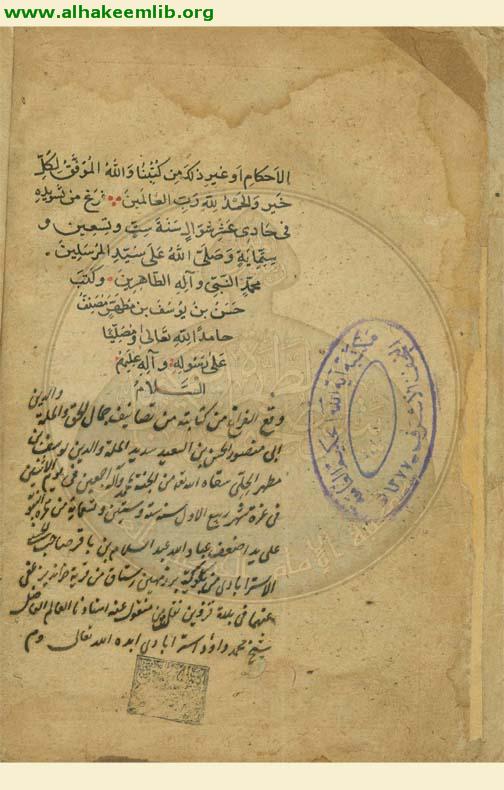 www.alhakeemlib.org
الاحكام او غير ذلك من كتبنا والله الموفق لكل
خير والحمد لله رب العالمين فرغ من تسويده
في حادي عشر شوال سنة ست وتسعين و
ستماية وصلى الله على سيد المرسلين
محمد النبي وآله الطاهرين وكتب
حسن بن يوسف بن مطهر مصنف
حامدا لله تعالى ومصليا
على رسوله وآله عليهم
السلام
وقع الفراغ من كتابته من تصانيف جمال الحق والملة والدين
ابى منصور الحسن بن السعيد سديد الملة والدين يوسف بن
مطهر الحلي سقاه الله من الجنة واله اجمعين في يوم الاثنين
في غرة شهر ربيع الاول سنة ستة وستين وتسعماية من هجرة النبوية
على يد اضعف عباد الله عبد السلام بن باقر صاحب
الاسترابادي من قرية
عنهما في بلدة قزوين نقل من منقول عنه استادنا العالم الفاضل
شيخ محمد داود استرابادي ايده الله تعالى
مكتبة آية الله الحكيم العامة